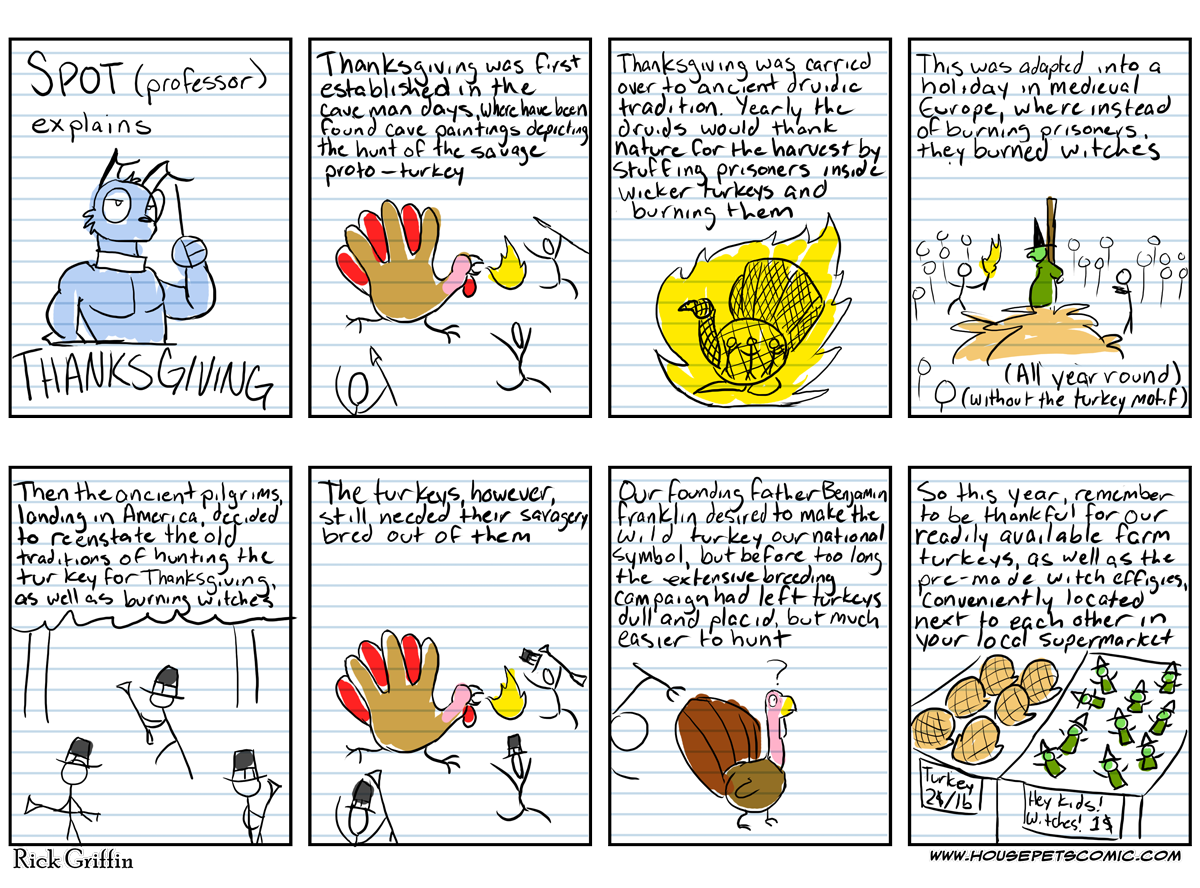 SPOT (professor)
explains
THANKSGIVING
Thanksgiving was first
established in the
cave man days, where have been
found cave paintings depicting
the hunt of the savage
proto-turkey
Thanksgiving was carried
over to ancient druidic
tradition. Yearly the
druids would thank
nature for the harvest by
stuffing prisoners inside
wicker turkeys and
burning them
This was adapted into a
holiday in medieval
Europe, where instead
of burning prisoners,
they burned witches
(All year round)
(without the turkey motif)
Then the ancient pilgrims,
landing in America, decided
to reenstate the old
traditions of hunting the
turkey for Thanksgiving,
as well as burning witches
The turkeys, however,
still needed their savagery
bred out of them
Our founding father Benjamin
Franklin desired to make the
wild turkey our national
symbol, but before too long
the extensive breeding
campaign had left turkeys
dull and placid, but much
easier to hunt
?
So this year, remember
to be thankful for our
readily available farm
turkeys, as well as the
pre-made witch effigies,
conveniently located
next to each other in
your local supermarket
Turkey
2$/lb
Hey kids!
Witches! 1$
Rick Griffin
WWW.HOUSEPETSCOMIC.COM